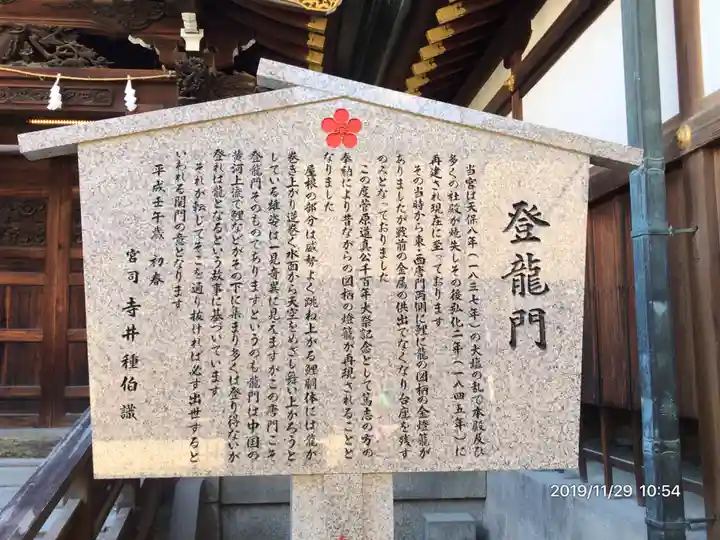 登龍門
当宮は天保八年（一八三七年）の大塩の乱で本殿及び
多くの社殿が焼失しその後弘化二年（一八四五年）に
再建され現在に至っております
その当時から東・西唐門両側に鯉に龍の図柄の金燈籠が
ありましたが戦前の金属の供出でなくなり台座を残す
のみとなっておりました
この度菅原道真公千百年大祭記念として篤志の方の
奉納により昔ながらの図柄の燈籠が再現されることと
なりました
屋根の部分は威勢よく跳ね上がる鯉胴体には龍が
巻き上がり逆巻く水面から天空をめざし舞い上がろうと
している雄姿は一見奇異に見えますがこの唐門こそ
登龍門そのものでありますというのも龍門は中国の
黄河上流で鯉などがその下に集まり多くは登り得ないが
登れば龍となるという故事に基づいています
それが転じてそこを通り抜ければ必ず出世すると
いわれる関門の意となります
平成壬午歳 初春
宮司 寺井種伯 識
2019/11/29 10:54